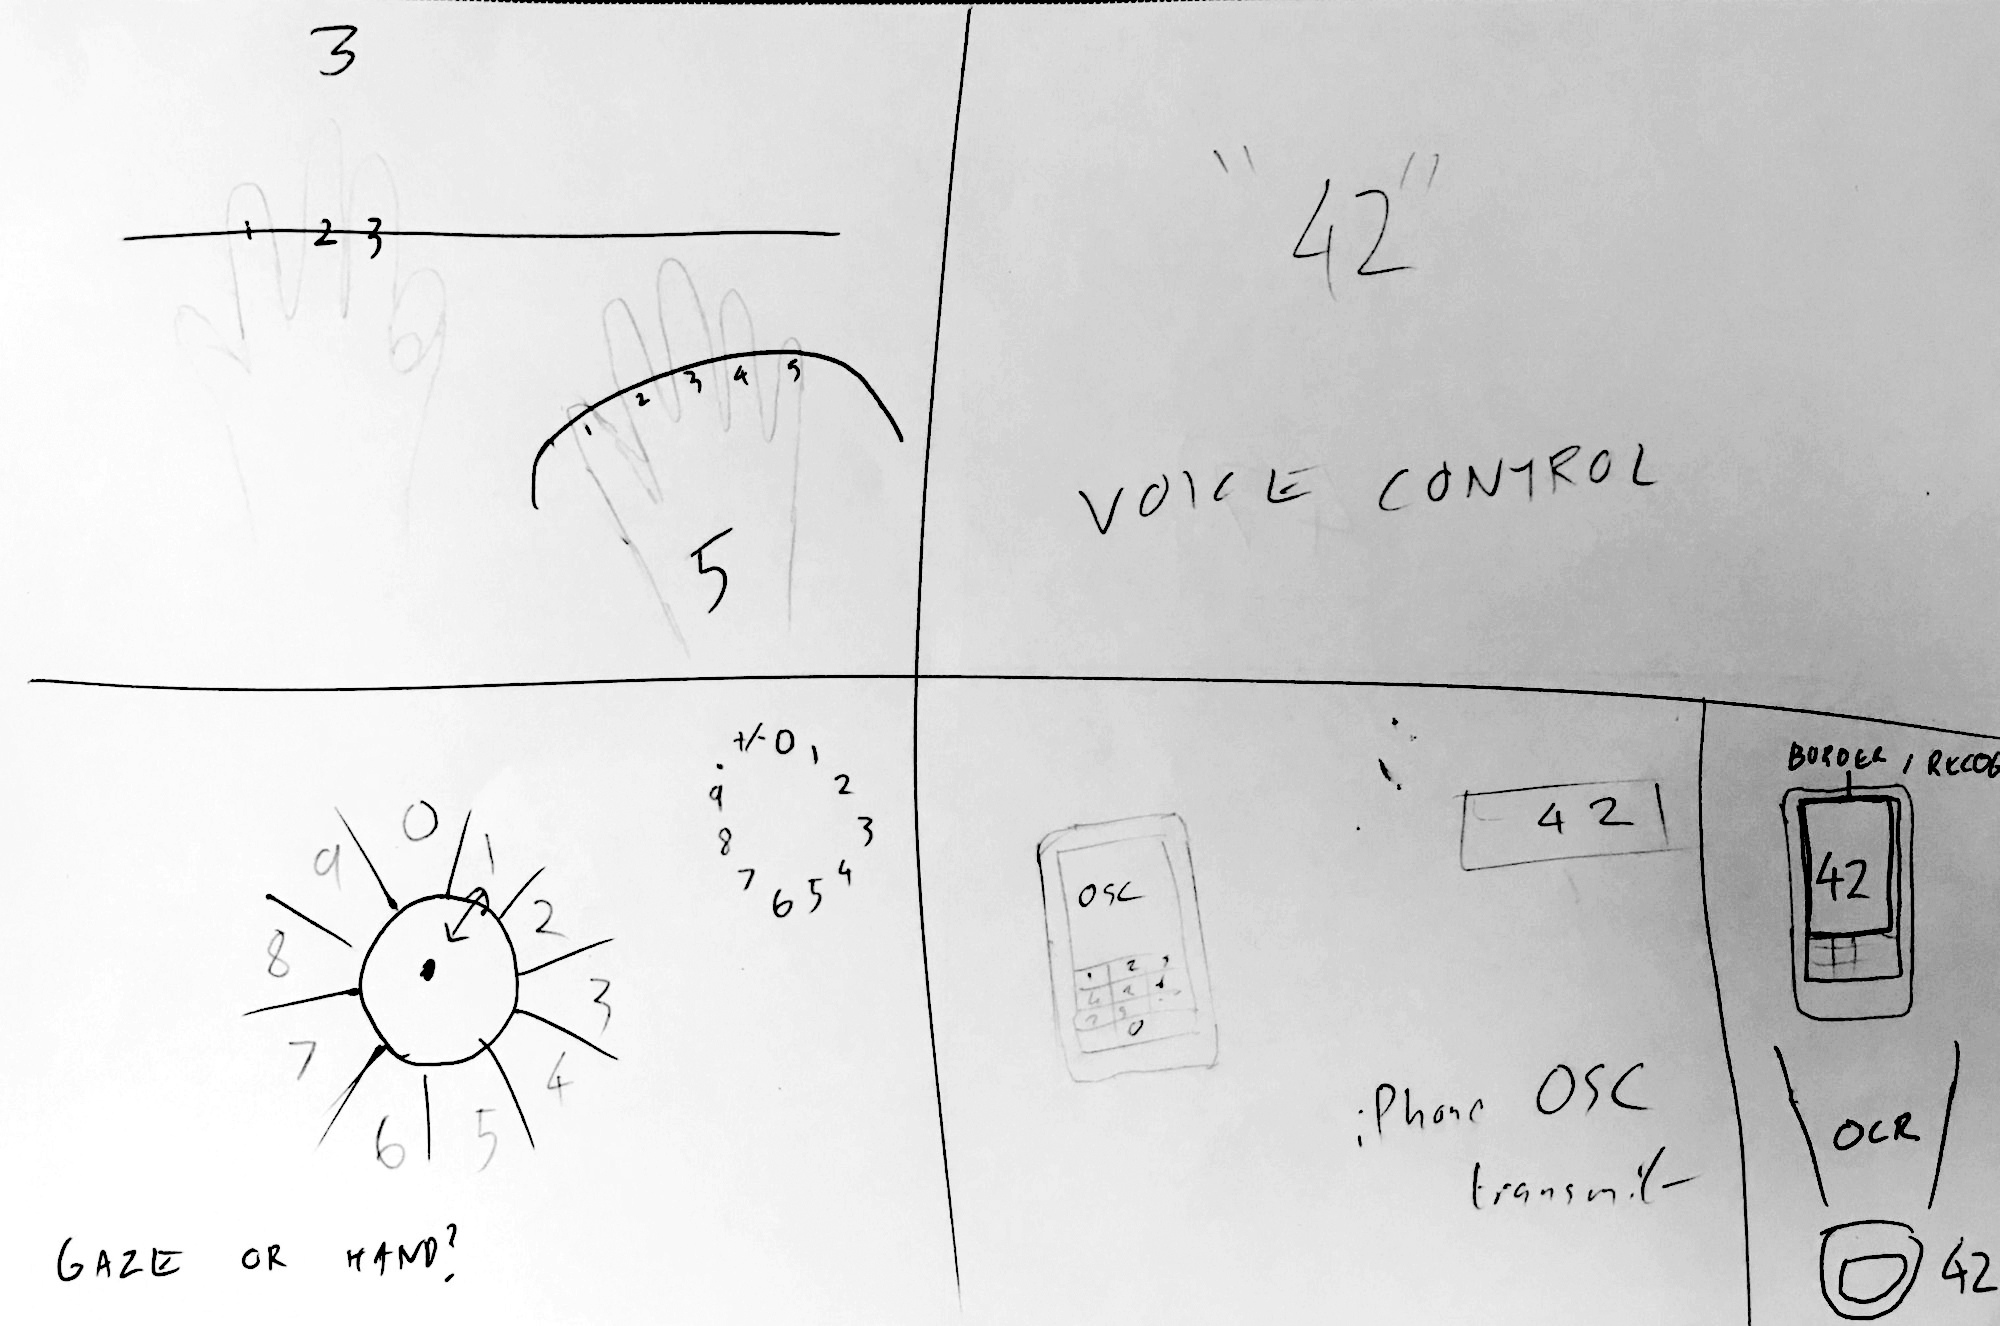 3
1 2 3
1 2 3 4 5
5
"42"
VOICE CONTROL
+/- 0 1 2 3 4 5 6 7 8 9 .
0 1 2 3 4 5 6 7 8 9
GAZE OR HAND?
OSC
1 2 3
0
42
iPhone OSC
transmit
BORDER / RECOG
42
OCR
42